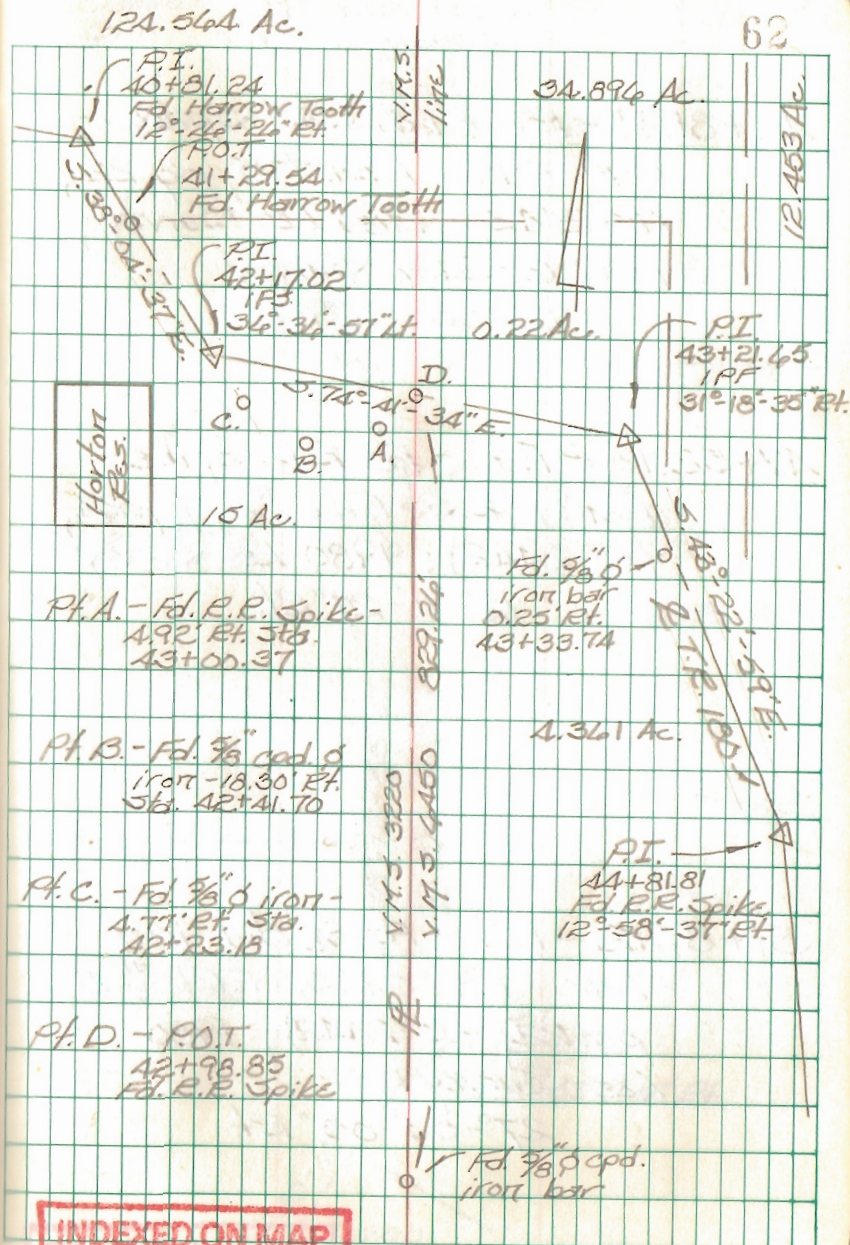 124.564 Ac.
62
P.I.
40+81.24
Fd. Harrow Tooth
12°-26'-26" Rt.
P.O.T.
41+29.54
Fd. Harrow Tooth
V.M.S.
line
34.896 Ac.
12.453 Ac.
S. 38°-04'-37" E.
P.I.
42+17.02
IPS.
36°-36'-57" Lt.
0.22 Ac.
P.I.
43+21.65
IPF
31°-18'-35" Rt.
D.
S. 74°-41'-34" E.
C.
B.
A.
Horton
Res.
15 Ac.
Fd. 5/8" ø
iron bar
0.25' Rt.
43+33.74
S. 43°-22'-59" E.
T.R. 180
Pt. A. - Fd. R.R. Spike -
4.92' Rt. Sta.
43+00.37
829.26'
4.361 Ac.
Pt. B. - Fd. 5/8" cpd. ø
iron - 18.30' Rt.
Sta. 42+41.70
V.M.S. 3220
V.M.S. 6450
P.I.
44+81.81
Fd. R.R. Spike
12°-58'-37" Rt.
Pt. C. - Fd. 5/8" ø iron -
4.77' Rt. Sta.
42+23.18
PL
Pt. D. - P.O.T.
42+98.85
Fd. R.R. Spike
Fd. 5/8" ø cpd.
iron bar
INDEXED ON MAP